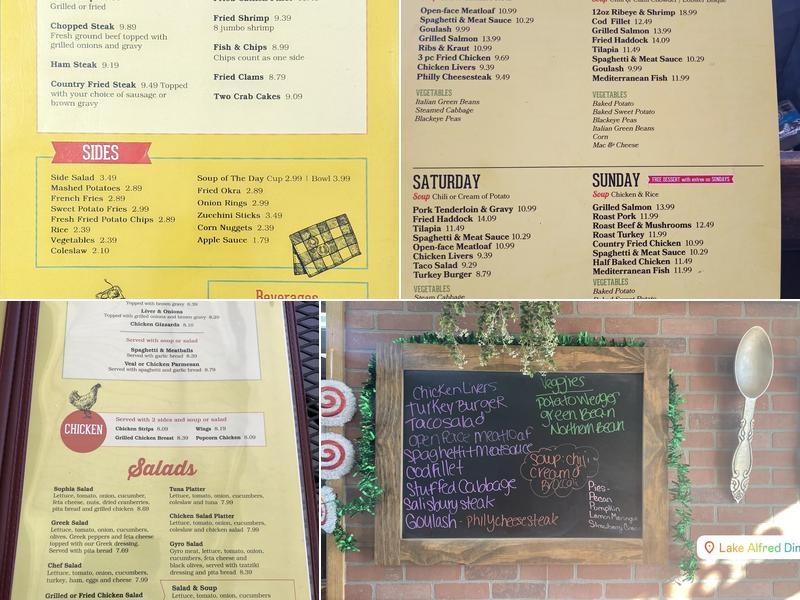 Grilled or fried
Chopped Steak 9.89
Fresh ground beef topped with
grilled onions and gravy
Ham Steak 9.19
Country Fried Steak 9.49 Topped
with your choice of sausage or
brown gravy
Fried Shrimp 9.39
8 jumbo shrimp
Fish & Chips 8.99
Chips count as one side
Fried Clams 8.79
Two Crab Cakes 9.09
SIDES
Side Salad 3.49
Mashed Potatoes 2.89
French Fries 2.89
Sweet Potato Fries 2.99
Fresh Fried Potato Chips 2.89
Rice 2.39
Vegetables 2.39
Coleslaw 2.10
Soup of The Day Cup 2.99 | Bowl 3.99
Fried Okra 2.89
Onion Rings 2.99
Zucchini Sticks 3.49
Corn Nuggets 2.39
Apple Sauce 1.79
Beverages
Open-face Meatloaf 10.99
Spaghetti & Meat Sauce 10.29
Goulash 9.99
Grilled Salmon 13.99
Ribs & Kraut 10.99
3 pc Fried Chicken 9.69
Chicken Livers 9.39
Philly Cheesesteak 9.49
VEGETABLES
Italian Green Beans
Steamed Cabbage
Blackeye Peas
12oz Ribeye & Shrimp 18.99
Cod Fillet 12.49
Grilled Salmon 13.99
Fried Haddock 14.09
Tilapia 11.49
Spaghetti & Meat Sauce 10.29
Goulash 9.99
Mediterranean Fish 11.99
VEGETABLES
Baked Potato
Baked Sweet Potato
Blackeye Peas
Italian Green Beans
Corn
Mac & Cheese
SATURDAY
Soup Chili or Cream of Potato
Pork Tenderloin & Gravy 10.99
Fried Haddock 14.09
Tilapia 11.49
Spaghetti & Meat Sauce 10.29
Open-face Meatloaf 10.99
Chicken Livers 9.39
Taco Salad 9.29
Turkey Burger 8.79
VEGETABLES
Steam Cabbage
SUNDAY FREE DESSERT with entree on SUNDAYS
Soup Chicken & Rice
Grilled Salmon 13.99
Roast Pork 11.99
Roast Beef & Mushrooms 12.49
Roast Turkey 11.99
Country Fried Chicken 10.99
Spaghetti & Meat Sauce 10.29
Half Baked Chicken 11.49
Mediterranean Fish 11.99
VEGETABLES
Baked Potato
Baked Sweet Potato
Topped with brown gravy 8.39
Liver & Onions
Topped with grilled onions and brown gravy 8.20
Chicken Gizzards 8.10
Served with soup or salad
Spaghetti & Meatballs
Served with garlic bread 8.39
Veal or Chicken Parmesan
Served with spaghetti and garlic bread 8.79
CHICKEN
Served with 2 sides and soup or salad
Chicken Strips 8.09
Wings 8.19
Grilled Chicken Breast 8.39
Popcorn Chicken 8.09
Salads
Sophia Salad
Lettuce, tomato, onion, cucumber,
feta cheese, nuts, dried cranberries,
pita bread and grilled chicken 8.69
Greek Salad
Lettuce, tomato, onion, cucumbers,
olives, Greek peppers and feta cheese
topped with our Greek dressing.
Served with pita bread 7.69
Chef Salad
Lettuce, tomato, onion, cucumbers,
turkey, ham, eggs and cheese 7.99
Grilled or Fried Chicken Salad
Tuna Platter
Lettuce, tomato, onion, cucumbers,
coleslaw and tuna 7.99
Chicken Salad Platter
Lettuce, tomato, onion, cucumbers,
coleslaw and chicken salad 7.99
Gyro Salad
Gyro meat, lettuce, tomato, onion,
cucumbers, feta cheese and
black olives, served with tzatziki
dressing and pita bread 8.39
Salad & Soup
Lettuce, tomato, onion, cucumbers
Chicken Livers
turkey Burger
Taco salad
open Face meatloaf
spaghetti + meatsauce
cod fillet
Stuffed Cabbage
salisbury steak
Goulash - philly cheesesteak
Veggies
potato wedges
green Bean
Northern Bean
Soup: chili
cream of
Broccoli
Pies -
Pecan
Pumpkin
Lemon Meringue
Strawberry
Lake Alfred Din